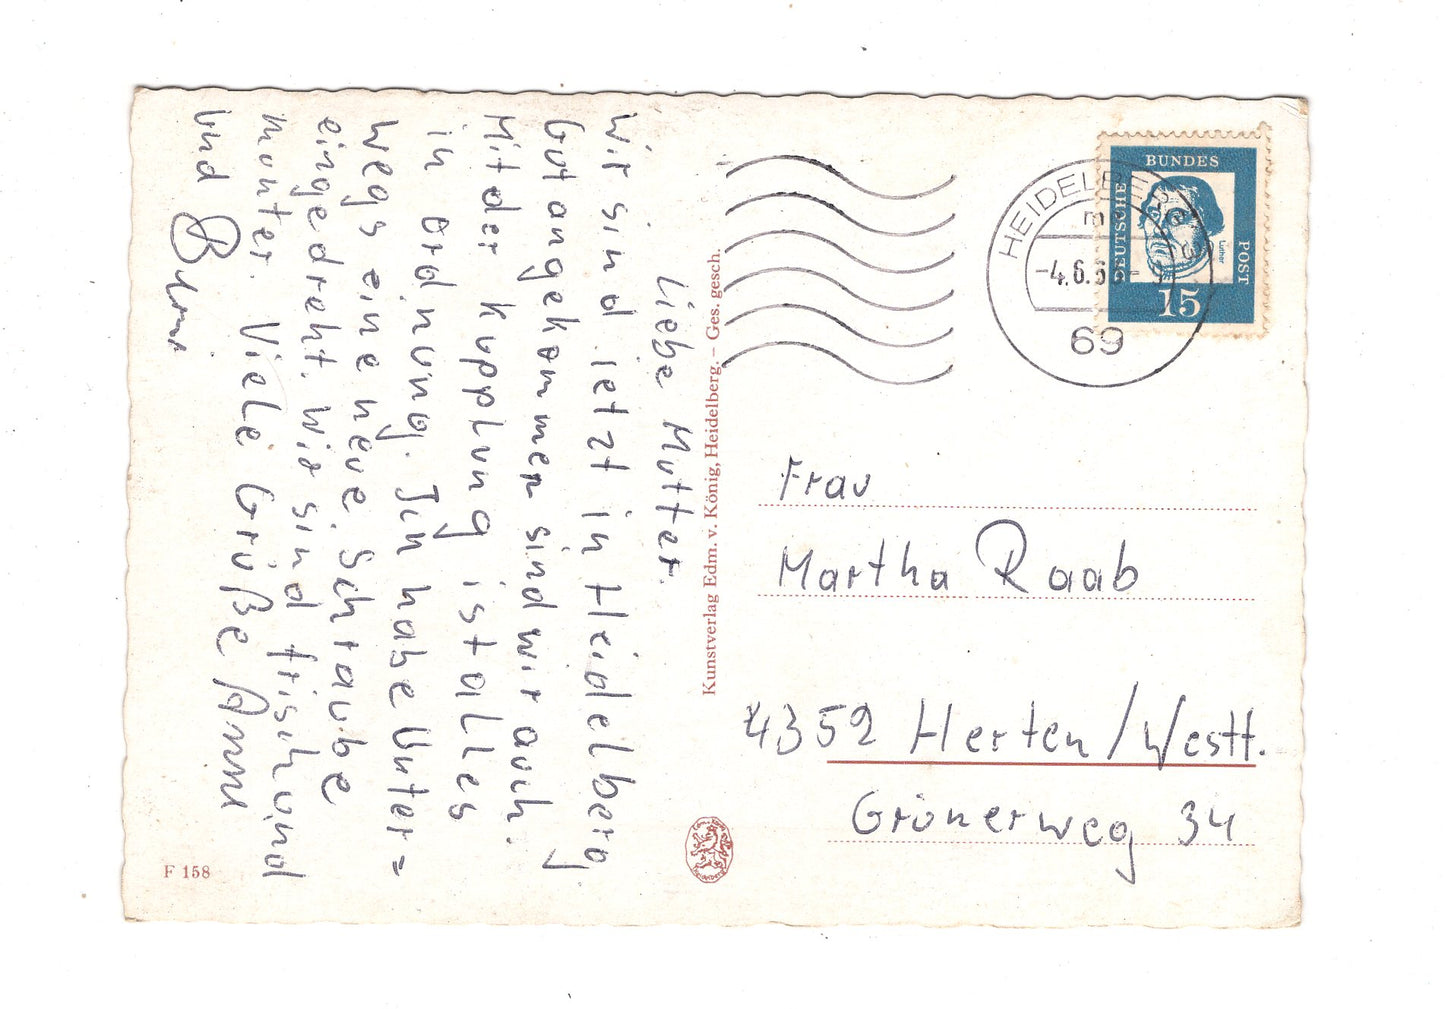 Liebe Mutter.
Wir sind ietzt in Heidelberg
Gut angekommen sind wir auch.
Mit der Kupplung ist alles
in Ordnung. Ich habe Unter=
wegs eine neue Schraube
eingedreht. Wir sind frisch und
monter. Viele Grüße Anne
und
Kunstverlag Edm. v. König, Heidelberg. – Ges. gesch.
HEIDELBERG
-4.6.6
69
DEUTSCHE
BUNDES
POST
Luther
15
Frau
Martha Raab
4352 Herten/Westf.
Grönerweg 34
Heidelberg
F 158